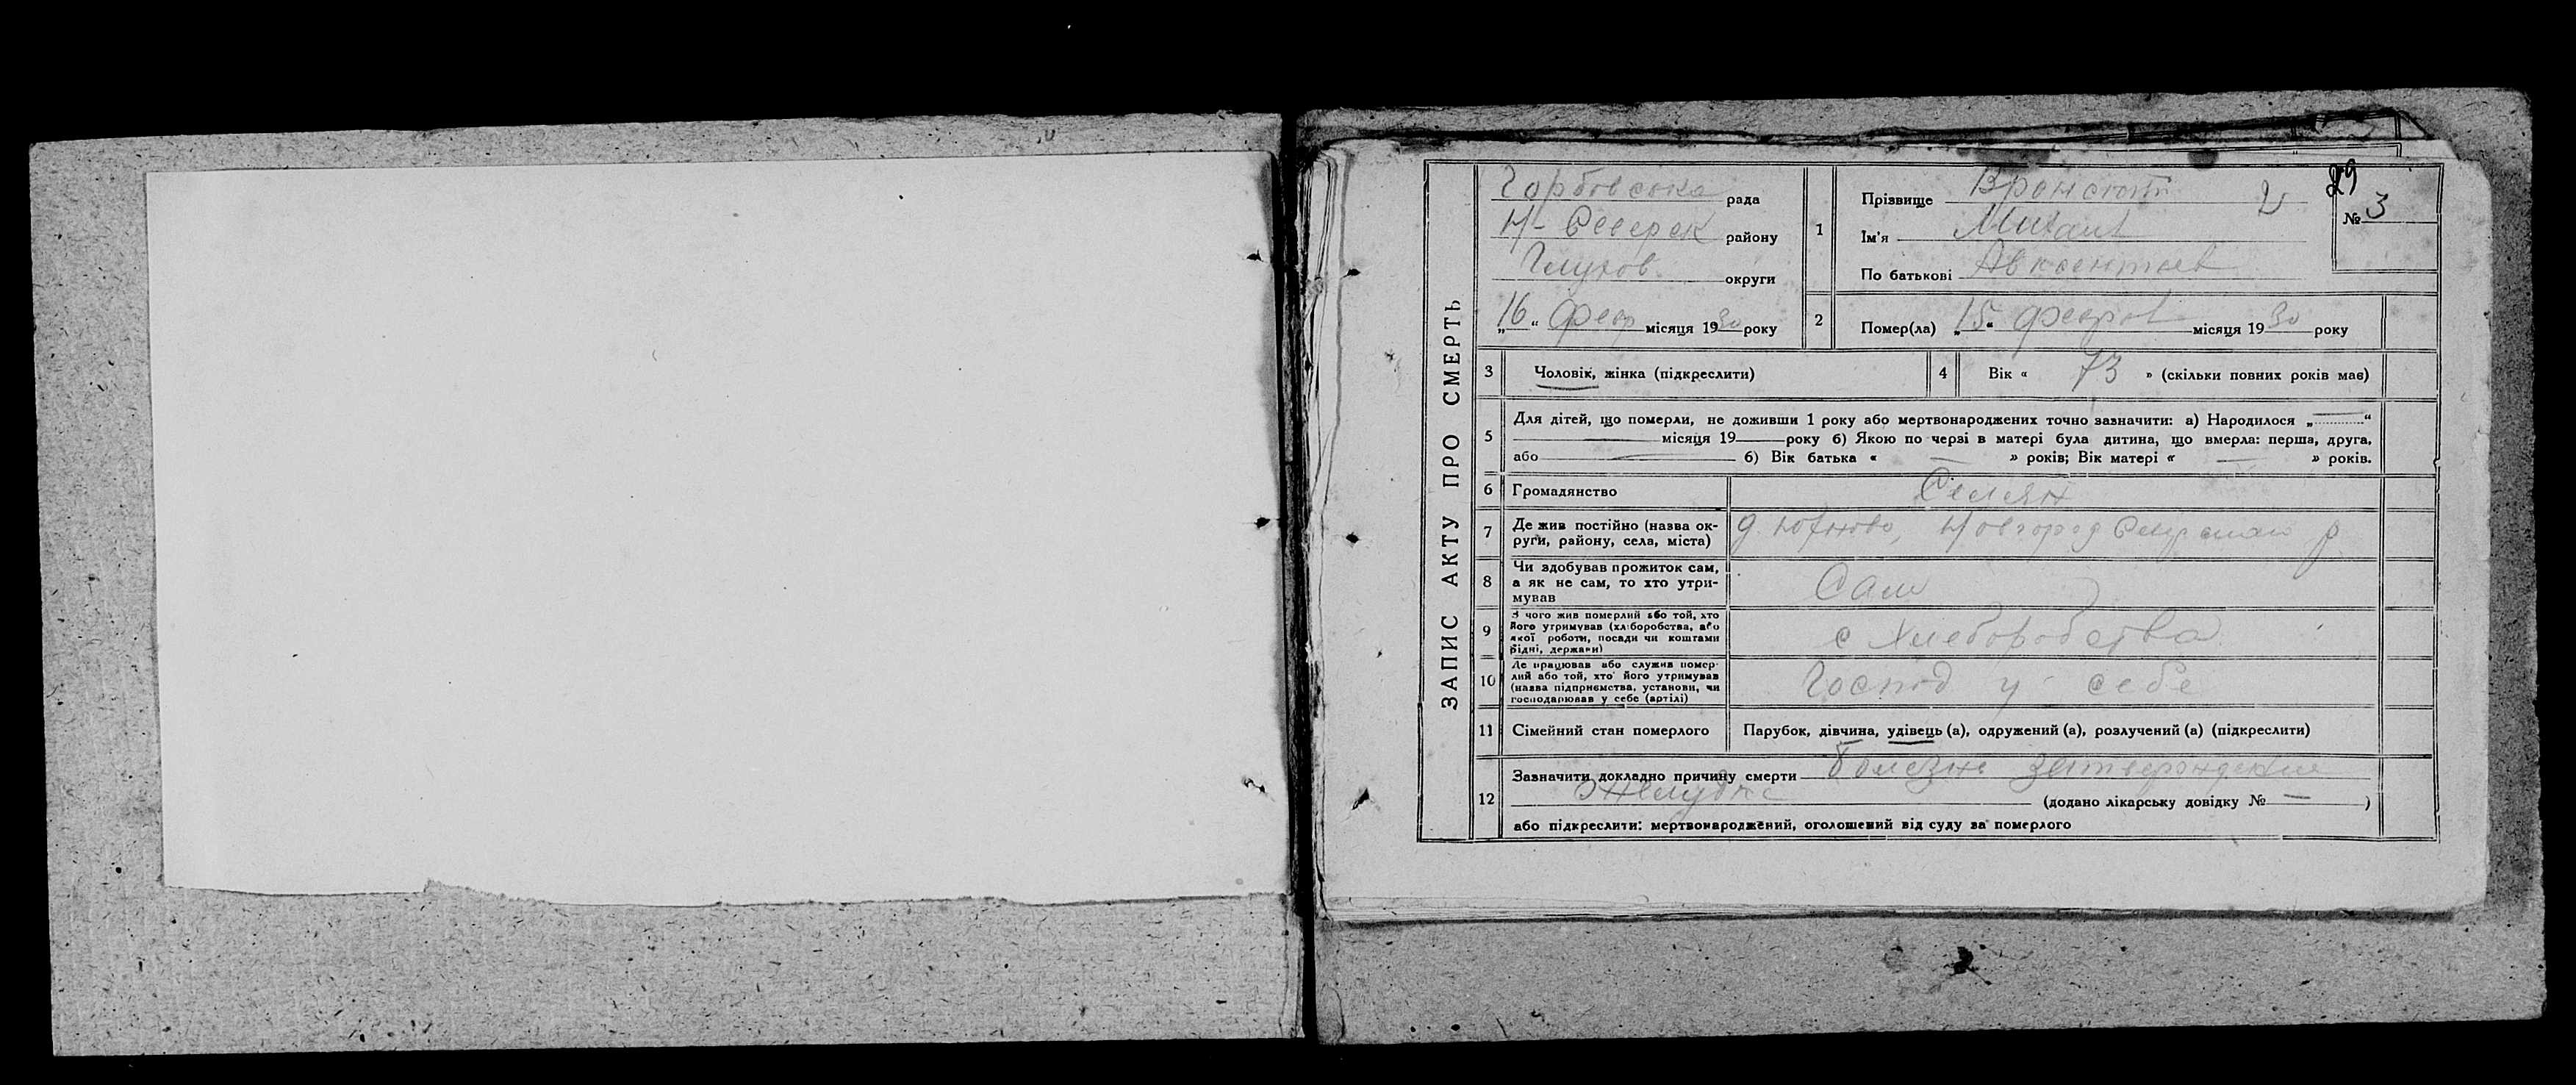 ЗАПИС АКТУ ПРО СМЕРТЬ
Горбовська рада
Н-Северск району
Глухов округи
„16“ Февр місяця 1930 року
29
№ 3
1 Прізвище Вронский
Ім'я Михаил
По батькові Авксентиев
2 Помер(ла) „15“ Феврал місяця 1930 року
3 Чоловік, жінка (підкреслити)
4 Вік « 73 » (скільки повних років має)
5 Для дітей, що померли, не доживши 1 року або мертвонароджених точно зазначити: а) Народилося „ “
місяця 19 року б) Якою по черзі в матері була дитина, що вмерла: перша, друга,
або б) Вік батька « — » років; Вік матері « — » років.
6 Громадянство Селян
7 Де жив постійно (назва ок-
руги, району, села, міста)
д. Юхново, Новгород Северский р
8 Чи здобував прожиток сам,
а як не сам, то хто утри-
мував
Сам
9 З чого жив померлий або той, хто
його утримував (хліборобства, або
якої роботи, посади чи коштами
рідні, держави)
с Хлеборобства
10 Де працював або служив помер-
лий або той, хто його утримував
(назва підприємства, установи, чи
господарював у себе (артілі)
Господ у себе
11 Сімейний стан померлого Парубок, дівчина, удівець (а), одружений (а), розлучений (а) (підкреслити)
12 Зазначити докладно причину смерти болезнь
желудка (додано лікарську довідку № — )
або підкреслити: мертвонароджений, оголошений від суду за померлого